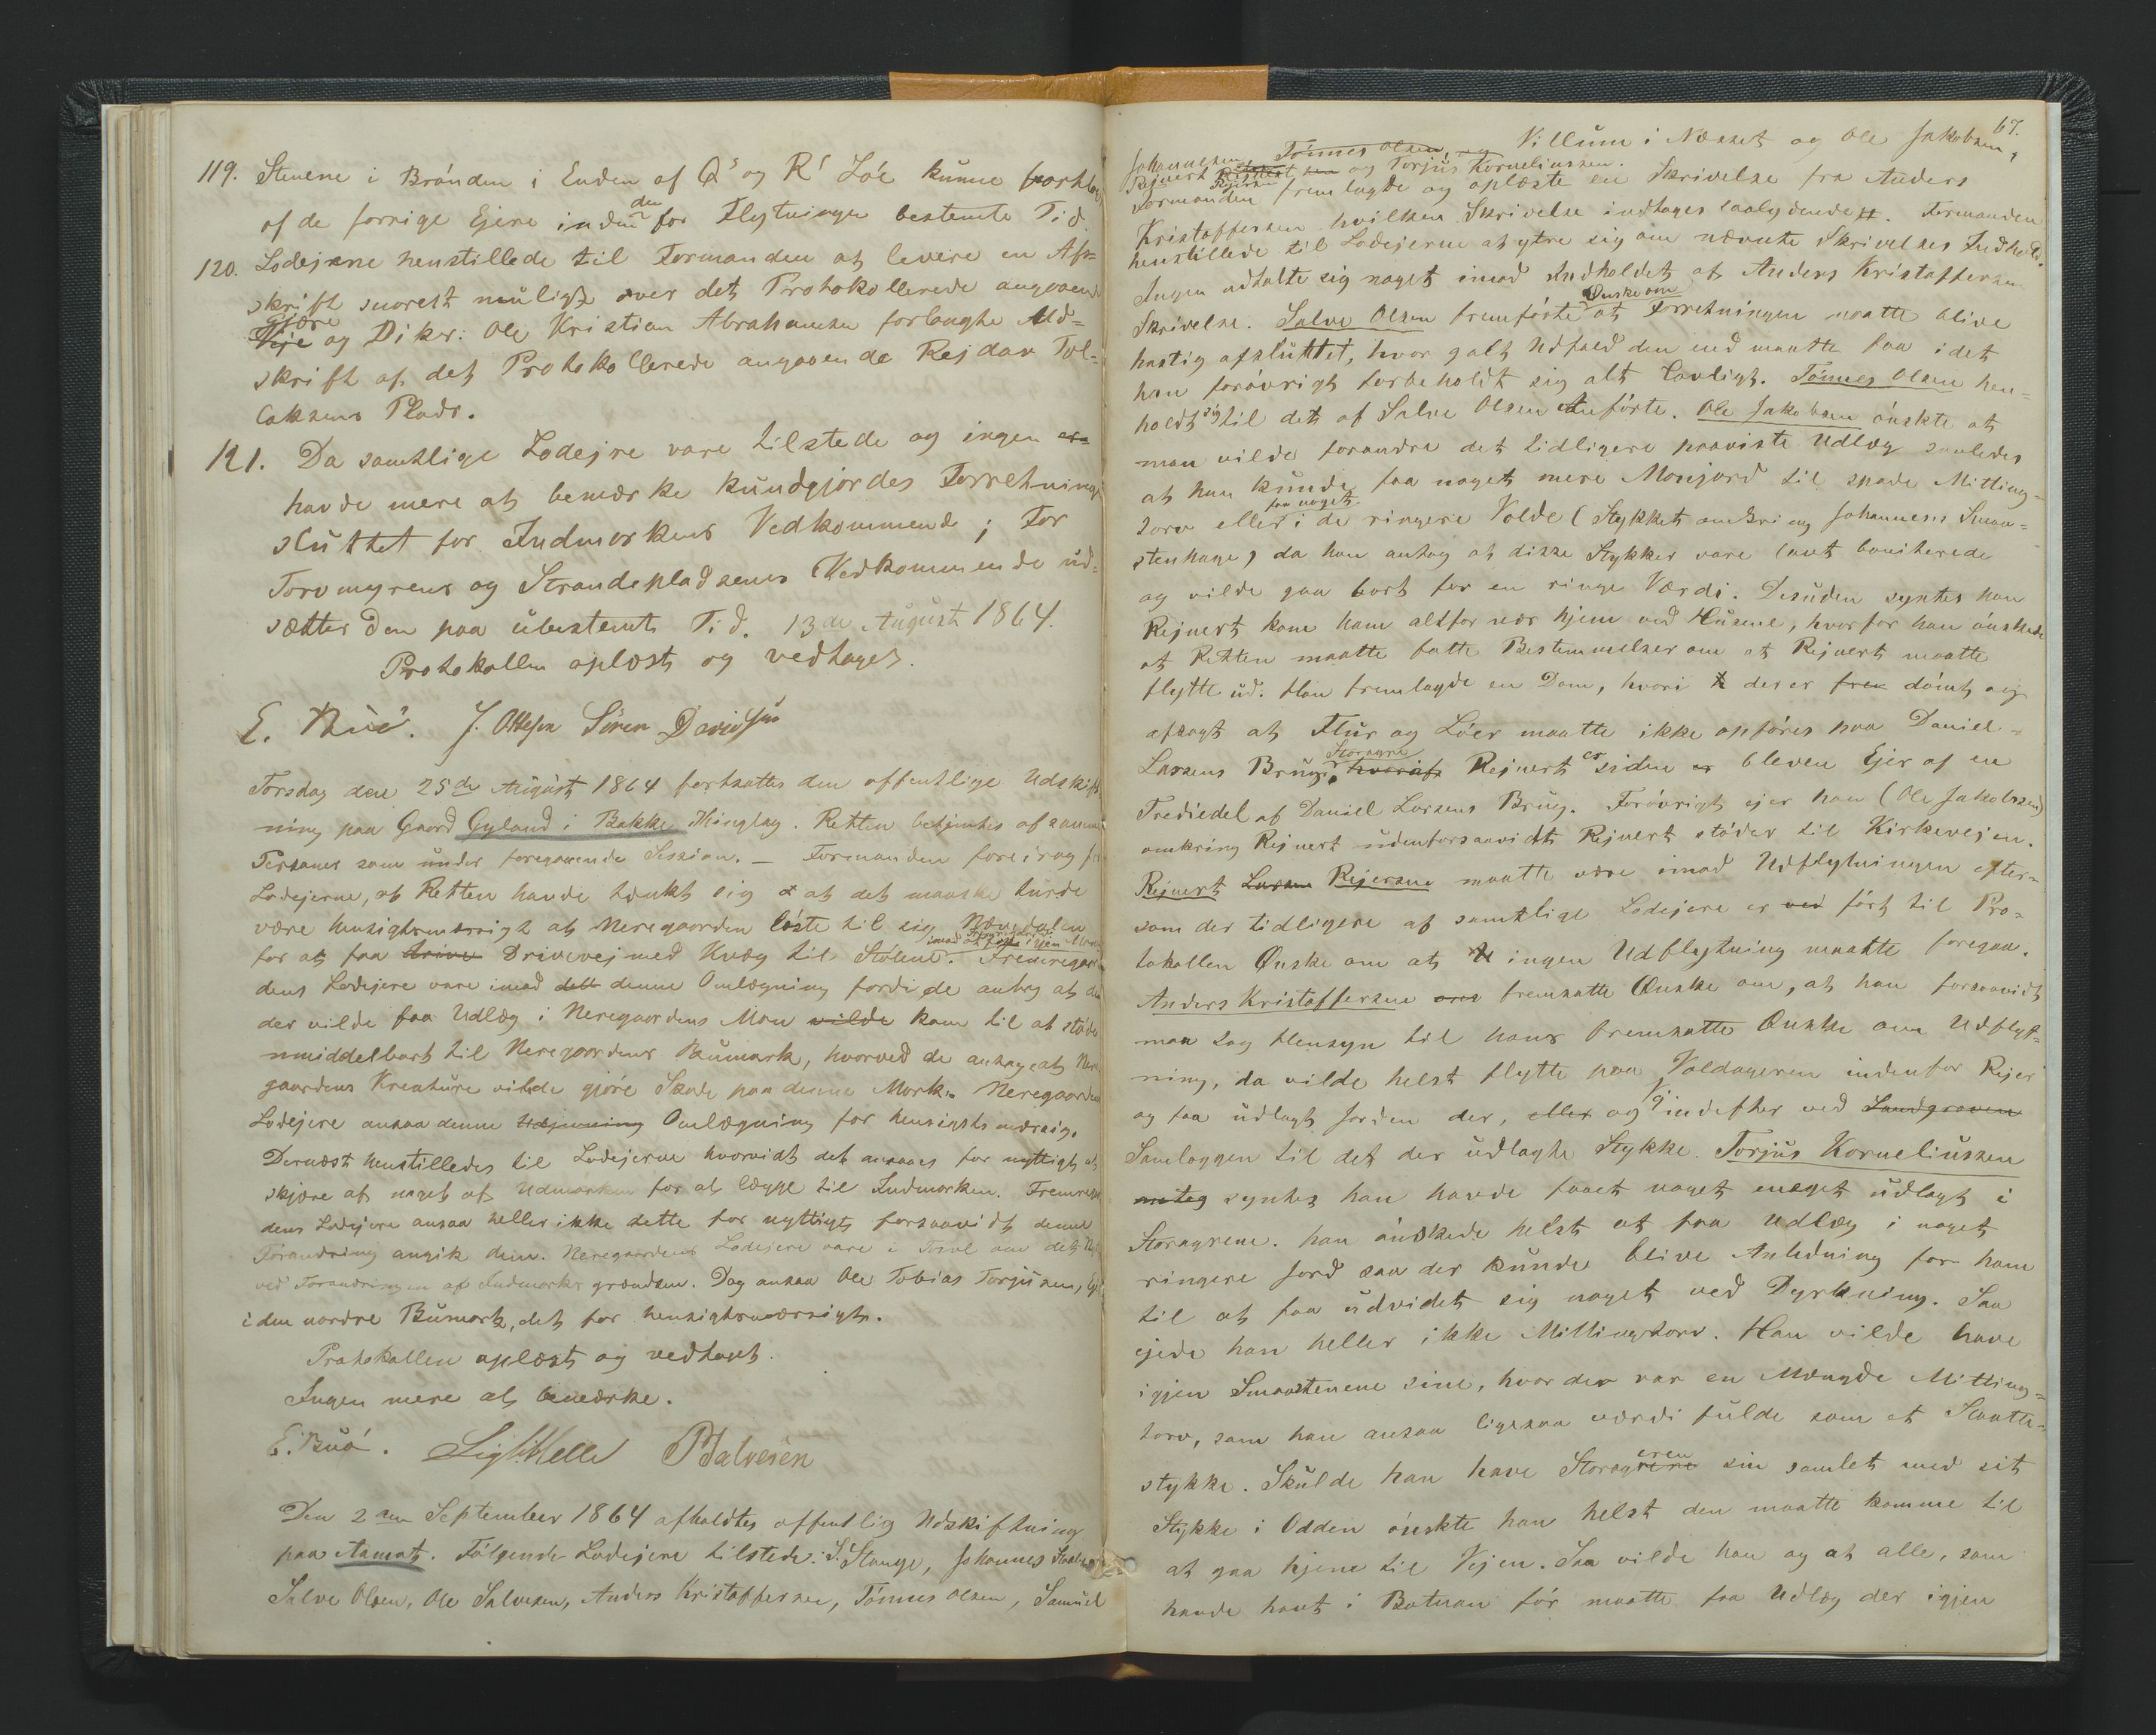 119. Stenene i Brönden i Enden af Q's og R' Löe kunne
af de forrige Ejere inden den for Flytningen bestemte Tid.
120. Lodejerne henstillede til Formanden at levere en Af-
skrift snarest muligt over det Protokollerede angaaende
Gjære og Diker: Ole Kristian Abrahamsen forlangte Ud-
skrift af det Protokollerede angaaende Rejdar Tol-
laksens Plads.
121. Da samtlige Lodejre vare tilstede og ingen
havde mere at bemærke kundgjordes Forretning
sluttet for Indmarkens Vedkommende; For
Torvmyrens og Strandepladsens Vedkommende ud-
sættes den paa ubestemt Tid. 13de August 1864.
Protokollen oplæst og vedtaget.
E. Bue. J. Ottesen Sören Davidsen
Torsdag den 25de August 1864 fortsattes den offentlige Udskift-
ning paa Gaard Gyland i Bakke Thinglag. Retten betjentes af samme
Personer som under foregaaende Session. – Formanden foredrog for
Lodejerne, at Retten havde tænkt sig at det maaske turde
være hensigtsmæssigt at Neregaarden löste til sig
for at faa Drivevej med Kvæg til Stölene. Fremregaar-
dens Lodejere vare imod denne Omlægning fordi de antog at de
der vilde faa Udlæg i Neregaardens Mon vilde kom til at støde
umiddelbart til Neregaardens Bumark, hvorved de antage at Nere
gaardens Kreature vilde gjöre Skade paa denne Mark. Neregaardens
Lodejere ansaa denne Udjevning Omlægning for hensigtsmæssig.
Dernæst henstilledes til Lodejerne hvorvidt det ansaaes for nyttigt at
skjære af noget af Udmarken for at lægge til Indmarken. Fremregaar
dens Lodejere ansaa heller ikke dette for nyttigt forsaavidt denne
Forandring angik dem. Neregaardens Lodejere vare i Tvivl om det
ved Forandringen af Indmarks grændsen. Dog ansaa Ole Tobias Torjusen,
i den nordre Bumark, det for hensigtsmæssigt.
Protokollen oplæst og vedtaget.
Ingen mere at bemærke.
E. Bue. Sigb. Helle P Salvesen
Den 2den September 1864 afholdtes offentlig Udskiftning
paa Aamot. Følgende Lodejere tilstede: S. Stange, Johannes
Salve Olsen, Ole Salvesen, Anders Kristoffersen, Tönnes Olsen, Samuel
67.
Johannesen, Tönnes Olsen, og Villum i Næsset og Ole Jakobsen,
Rejnert Rejersen og Torjus Korneliussen.
Formanden fremlagde og oplæste en Skrivelse fra Anders
Kristoffersen hvilken Skrivelse indtages saalydende. Formanden
henstillede til Lodejerne at ytre sig om nævnte Skrivelses Indhold.
Ingen udtalte sig noget imod Indholdet af Anders Kristoffersen
Skrivelse. Salve Olsen fremförte Ønske om at Forretningen maatte blive
hastig afsluttet, hvor galt Udfald den end maatte faa idet
han forövrigt forbeholdt sig alt Lovligt. Tönnes Olsen hen-
holdt sig til det af Salve Olsen Anförte. Ole Jakobsen önskte at
man vilde forandre det tidligere paaviste Udlæg saaledes
at han kunde faa noget mere Monjord til spade Mitting-
torv eller faa noget i de ringere Volde (Stykket omkring Johannesens Smaa-
stenhage) da han antog at disse Stykker vare lavt boniterede
og vilde gaa bort for en ringe Værdi. Desuden syntes han
Rejnert kom ham altfor nær hjem ved Husene, hvorfor han önskede
at Retten maatte fatte Bestemmelser om at Rejnert maatte
flytte ud. Han fremlagde en Dom, hvori der er dömt og
afsagt at Flur og Löer maatte ikke opföres paa Daniel
Larsens Brug, Storagre hvoraf Rejnert er siden bleven Ejer af en
Trediedel af Daniel Larsens Brug. Forövrigt ejer han (Ole Jakobsen)
omkring Rejnert udenforsaavidt Rejnert stöder til Kirkevejen.
Rejnert Larsen Rejersen maatte være imod Udflytningen efter-
som der tidligere af samtlige Lodejere er ved fört til Pro-
tokollen Ønske om at ingen Udflytning maatte foregaa.
Anders Kristoffersen fremsatte Ønske om, at han forsaavidt
man tog Hensyn til hans fremsatte Ønske om Udflyt-
ning, da vilde helst flytte paa Voldageren indenfor Rejer
og faa udlagt Jorden der, eller og indefter ved Landgraven
Samloggen til det der udlagte Stykke. Torjus Korneliussen
antog syntes han havde faaet noget meget udlagt i
Storagrene. han önskede helst at faa Udlæg i noget
ringere Jord saa der kunde blive Anledning for ham
til at faa udvidet sig noget ved Dyrkning. Saa
ejede han heller ikke Mittingtorv. Han vilde have
igjen Smaastenene sine, hvor der var en Mængde Mitting-
torv, som han ansaa ligesaa værdi fulde som et Slaatte-
stykke. Skulde han have Storageren sin samlet med sit
Stykke i Odden önskte han helst den maatte komme til
at gaa hjem til Vejen. Saa vilde han og at alle, som
havde havt i Botnan för maatte faa Udlæg der igjen